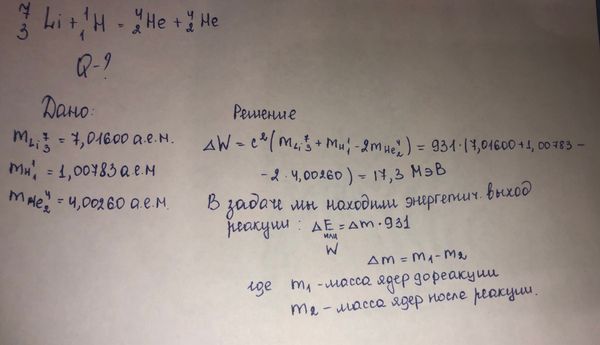 ⁷₃Li + ¹₁H = ⁴₂He + ⁴₂He
Q-?
Дано:
m Li ⁷₃ = 7,01600 а.е.м.
m H ¹₁ = 1,00783 а.е.м
m He ⁴₂ = 4,00260 а.е.м.
Решение
ΔW = c²(m Li ⁷₃ + m H ¹₁ - 2m He ⁴₂) = 931·(7,01600+1,00783 -
- 2·4,00260) = 17,3 МэВ
В задаче мы находили энергетич. выход
реакции: ΔE = Δm·931
или
W
Δm = m₁ - m₂
где m₁ - масса ядер до реакции
m₂ - масса ядер после реакции.